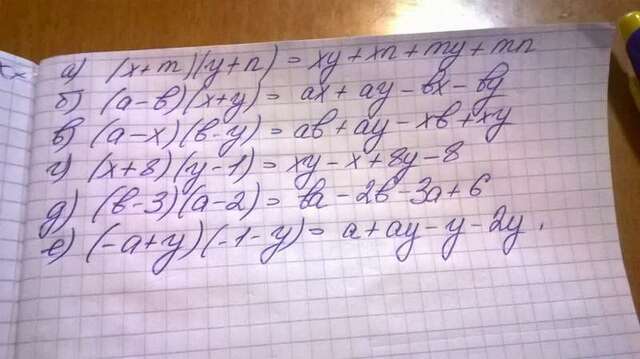 а) (x+m)(y+n) = xy+xn+my+mn
б) (a-в)(x+y) = ax+ay-вx-вy
в) (a-x)(в-y) = aв+ay-xв+xy
г) (x+8)(y-1) = xy-x+8y-8
д) (в-3)(a-2) = вa-2в-3a+6
е) (-a+y)(-1-y) = a+ay-y-2y.